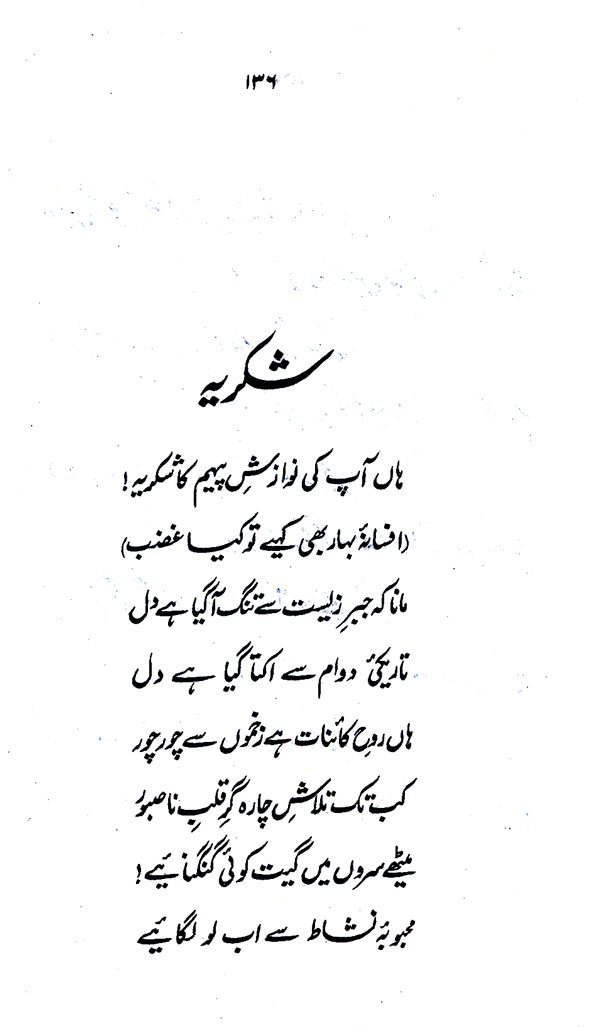 ۱۳۶
شکریہ
ہاں آپ کی نوازشِ پیہم کا شکریہ!
(افسانۂ بہار بھی کہیے تو کیا غضب)
مانا کہ جبرِ زیست سے تنگ آگیا ہے دل
تاریکیٔ دوام سے اکتا گیا ہے دل
ہاں روحِ کائنات ہے زخموں سے چور چور
کب تک تلاشِ چارہ گرِ قلبِ ناصبور
میٹھے سروں میں گیت کوئی گنگنائیے!
محبوبۂ نشاط سے اب لو لگائیے